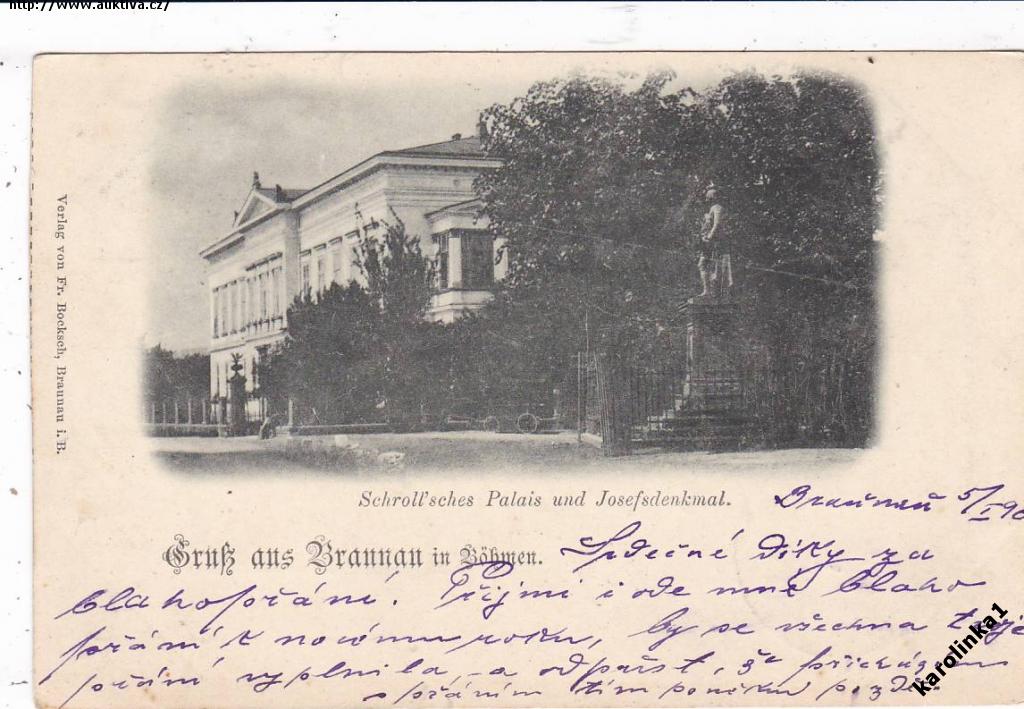 http://www.auktiva.cz/
Verlag von Fr. Bocksch, Braunau i. B.
Schroll'sches Palais und Josefsdenkmal.
Braunau 5/I 90
Gruß aus Braunau in Böhmen.
Srdečné díky za
blahopřání. Přijmi i ode mne blaho
přání k novému roku, by se všechna tvoje
přání vyplnila a odpusť, že přicházím
s přáním tím poněkud pozdě.
karolinka1